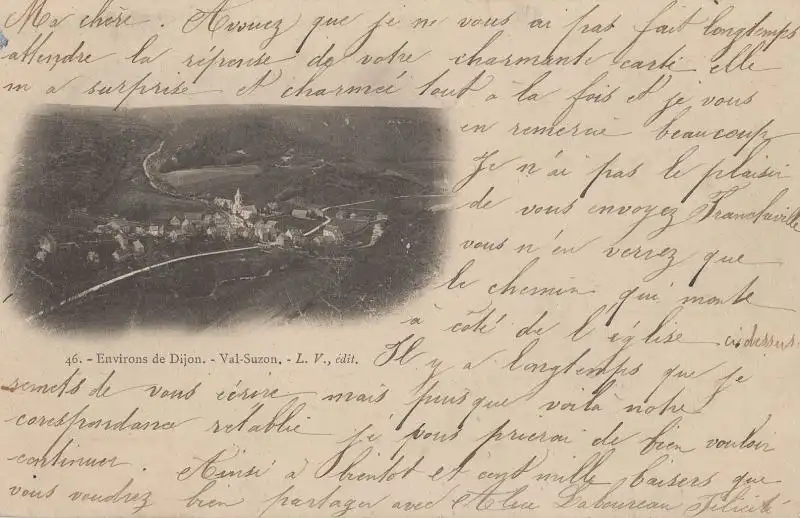 Ma chère. Avouez que je ne vous ai pas fait longtemps
attendre la réponse de votre charmante carte elle
m a surprise et charmée tout à la fois et je vous
en remercie beaucoup
Je n'ai pas le plaisir
de vous envoyez Francheville
vous n'en verrez que
le chemin qui monte
à côté de l'église ci dessus.
46. - Environs de Dijon. - Val-Suzon. - L. V., édit.
Il y a longtemps que je
remets de vous écrire mais puisque voilà notre
corespondance rétablie je vous prierai de bien vouloir
continuer. Ainsi à bientôt et cent mille baisers que
vous voudrez bien partager avec Alice Laboureau Félicité